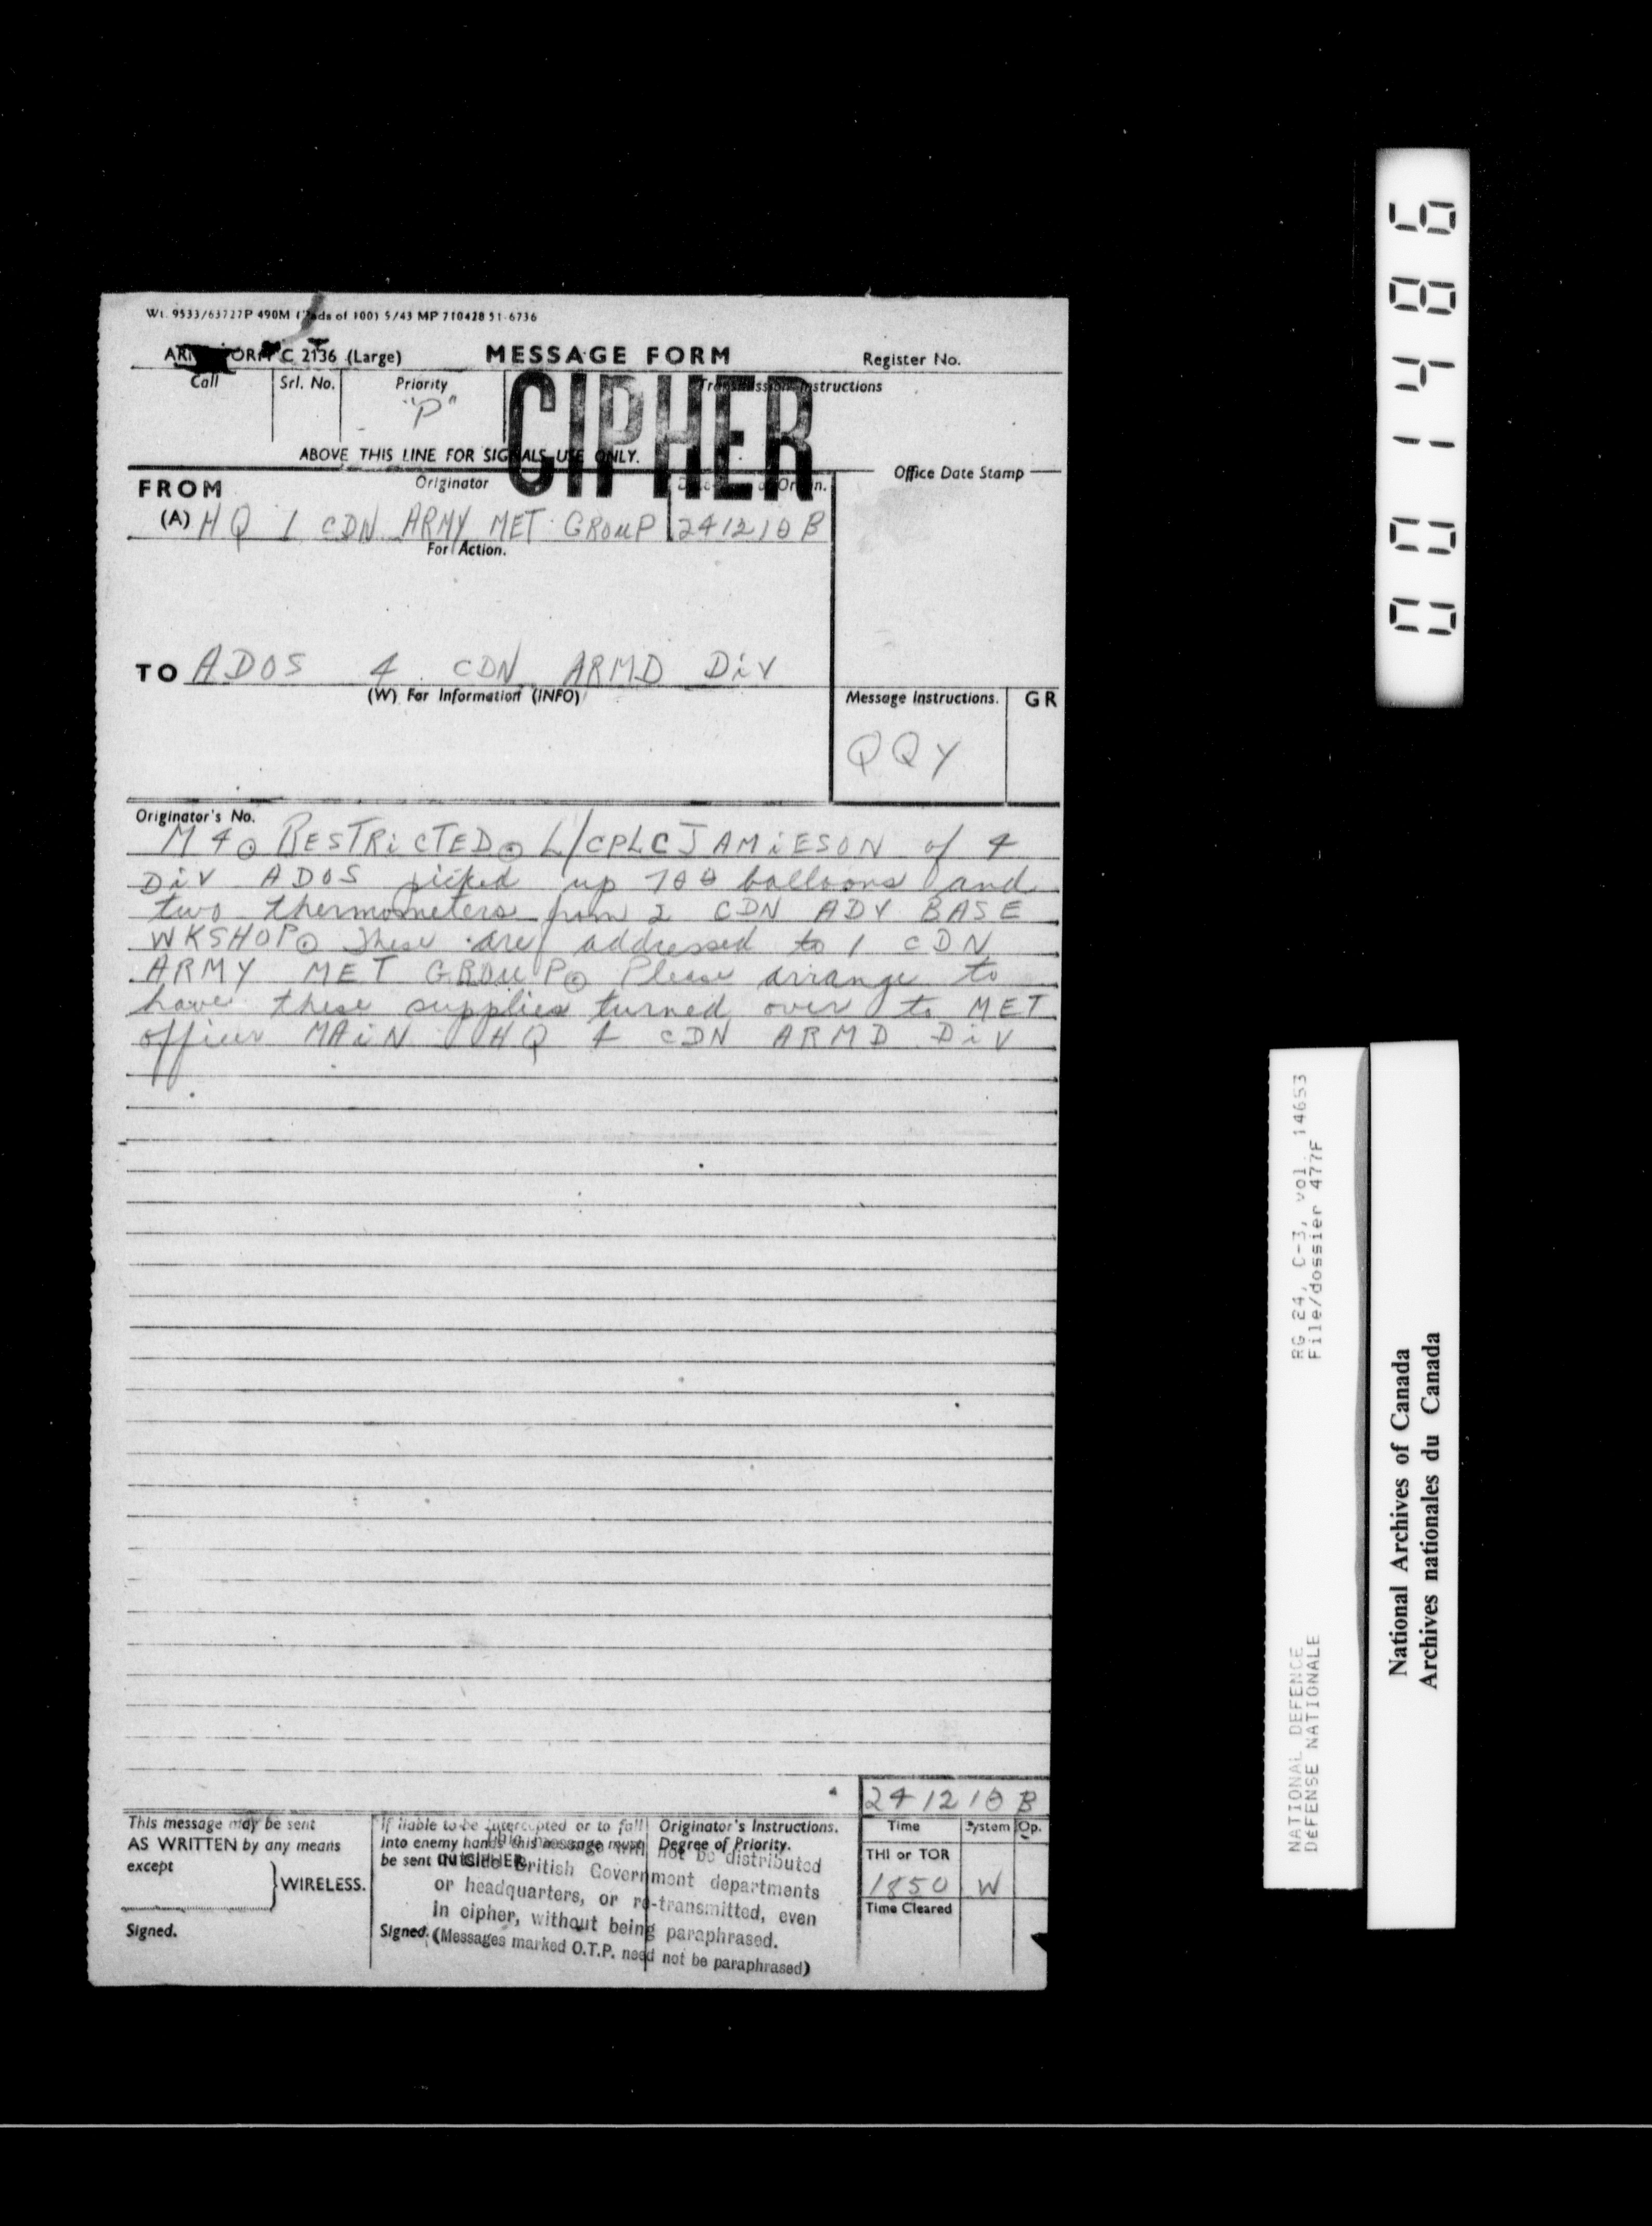 Wt. 9533/63727P 490M (Pads of 100) 5/43 MP 710428 51-6736
C 2136 (Large)
MESSAGE FORM
Register No.
Call
Srl. No.
Priority
Transmission Instructions
"P"
CIPHER
ABOVE THIS LINE FOR SIGNALS USE ONLY.
Office Date Stamp
FROM
Originator
(A) HQ 1 CDN ARMY MET GROUP 241210B
For Action.
TO ADOS 4 CDN ARMD DiV
(W) For Information (INFO)
Message Instructions. GR
QQY
Originator's No.
M4⊙ RESTRiCTED⊙ L/CPLCJAMiESON of 4
DiV ADOS picked up 700 balloons and
two thermometers from 2 CDN ADV BASE
WKSHOP⊙ These are addressed to 1 CDN
ARMY MET GROUP⊙ Please arrange to
have these supplies turned over to MET
officer MAiN HQ 4 CDN ARMD DiV
241210B
This message may be sent
AS WRITTEN by any means
except
WIRELESS.
Signed.
If liable to be intercepted or to fall
into enemy hands this message must
be sent IN CIPHER.
Originator's Instructions.
Degree of Priority.
Time System Op.
THI or TOR
1850 W
Time Cleared
This message will not be distributed
outside British Government departments
or headquarters, or re-transmitted, even
in cipher, without being paraphrased.
Signed. (Messages marked O.T.P. need not be paraphrased)
001486
RG 24, C-3, vol. 14653
File/dossier 477F
NATIONAL DEFENCE
DÉFENSE NATIONALE
National Archives of Canada
Archives nationales du Canada